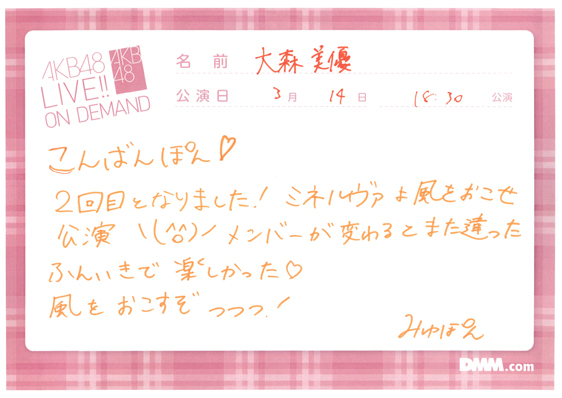 AKB48
LIVE!!
ON DEMAND
AKB
48
名前 大森美優
公演日 3月 14日 18:30 公演
こんばんぽん♡
2回目となりました! ミネルヴァよ風をおこせ
公演 \(^o^)/ メンバーが変わるとまた違った
ふんいきで 楽しかった♡
風を おこすぞ っっっ!
みゆぽん
DMM.com